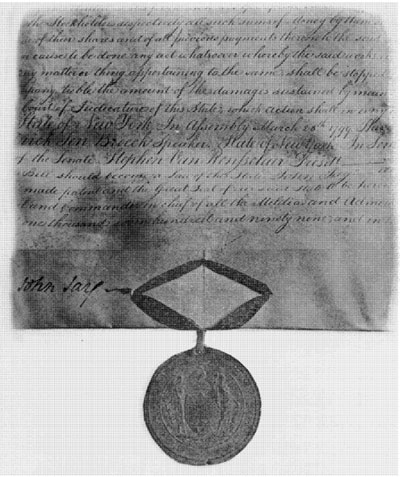 the Stockholders respectively all such sums of Money by them
of their shares and of all previous payments thereon the said
cause to be done any act whatsoever whereby the said work
any matter or thing appertaining to the same shall be stopped
pany, treble the amount of the damages sustained by means
Court of Judicature of this State; which action shall in
State of New York In Assembly March 28th 1799
rick Ten Broeck Speaker State of New York In Sen
of the Senate, Stephen Van Rensselaer Presidt
Bill should become a Law of this State. In Testimony
made patent and the Great Seal of our said State to be here
and Commander in Chief of all the Militia and Admi
one thousand seven hundred and ninety nine and in
John Jay